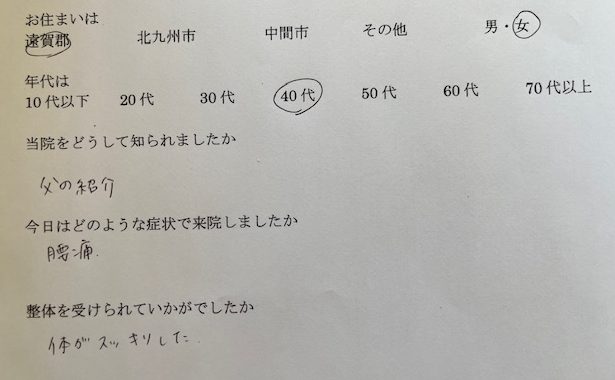 お住まいは
遠賀郡 北九州市 中間市 その他 男・女
年代は
10代以下 20代 30代 40代 50代 60代 70代以上
当院をどうして知られましたか
父の紹介
今日はどのような症状で来院しましたか
腰痛.
整体を受けられていかがでしたか
体がスッキリした.